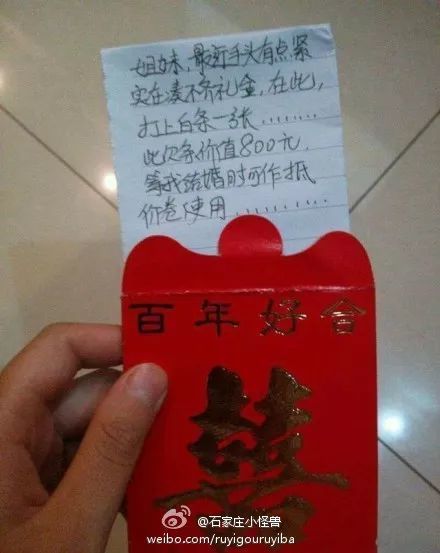 姐妹,最近手头有点紧
实在凑不齐礼金,在此,
打上白条一张........
此欠条价值800元.
等我结婚时可作抵
价卷使用..........
百年好合
囍
@石家庄小怪兽
weibo.com/ruyigouruyiba